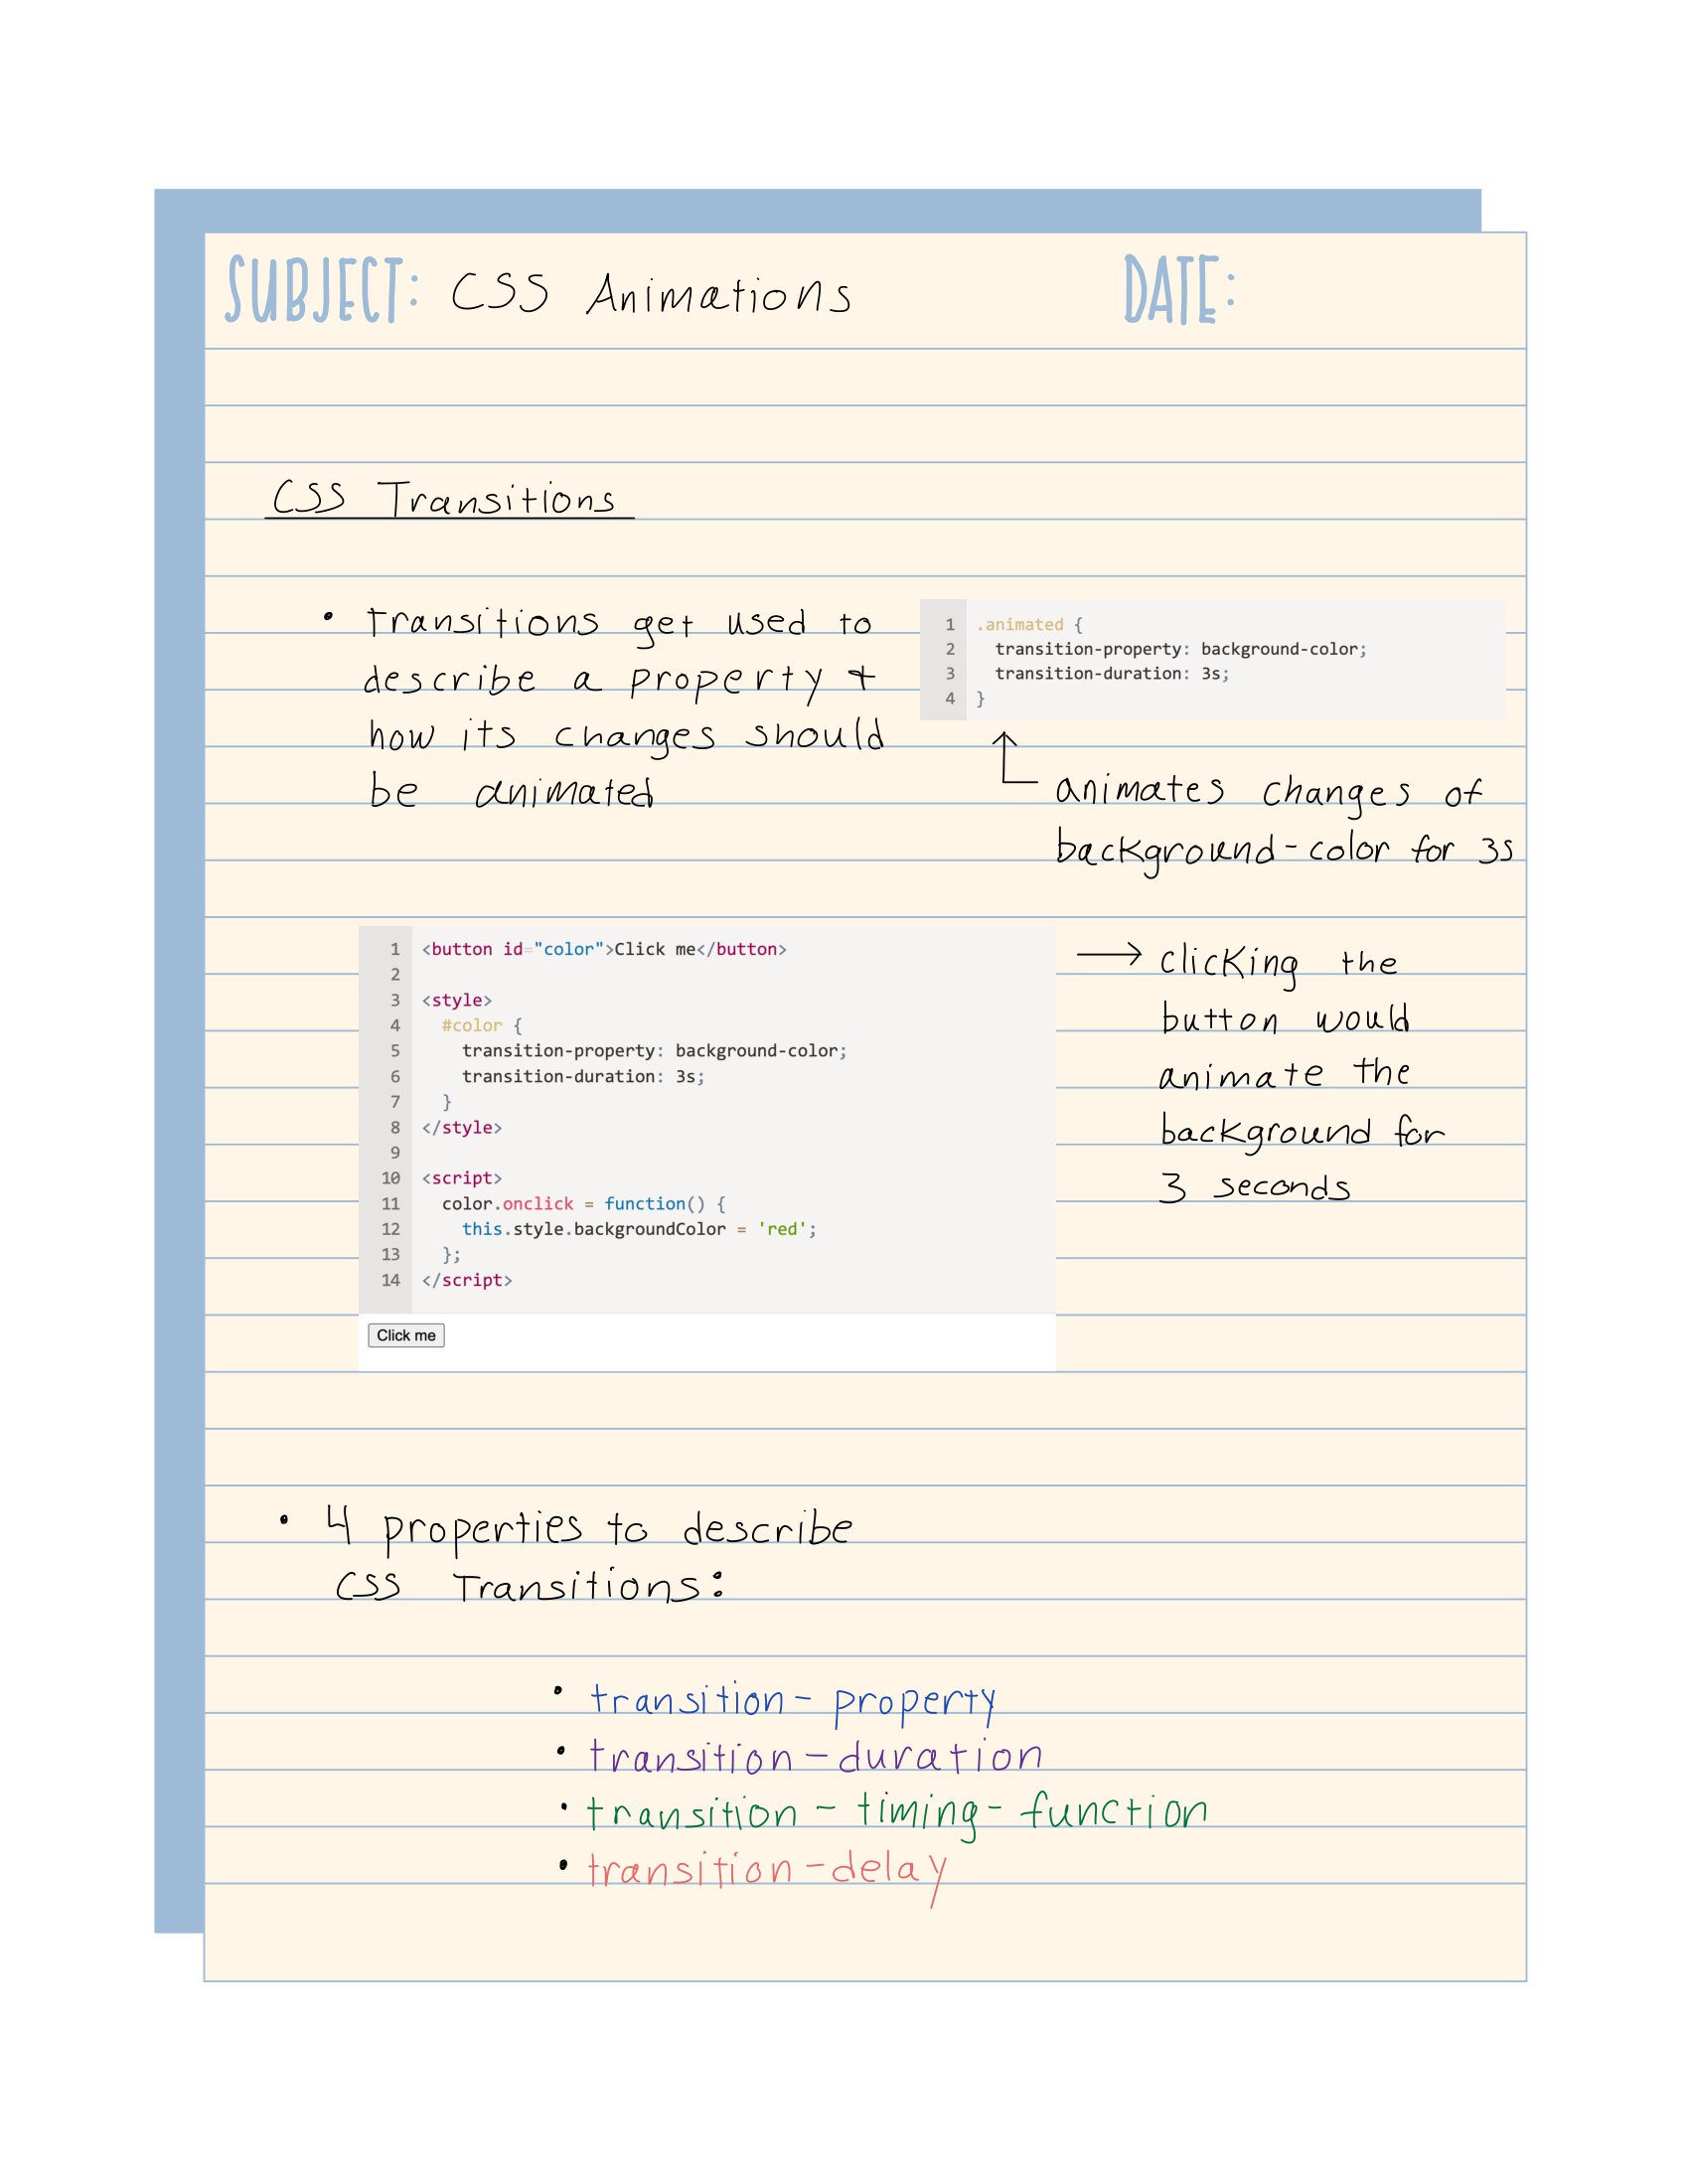 SUBJECT: CSS Animations DATE:
CSS Transitions
• transitions get used to
describe a property +
how its changes should
be animated
1 .animated {
2   transition-property: background-color;
3   transition-duration: 3s;
4 }
animates changes of
background-color for 3s
1 <button id="color">Click me</button>
2
3 <style>
4   #color {
5     transition-property: background-color;
6     transition-duration: 3s;
7   }
8 </style>
9
10 <script>
11   color.onclick = function() {
12     this.style.backgroundColor = 'red';
13   };
14 </script>
Click me
→ clicking the
button would
animate the
background for
3 seconds
• 4 properties to describe
CSS Transitions:
• transition-property
• transition-duration
• transition-timing-function
• transition-delay